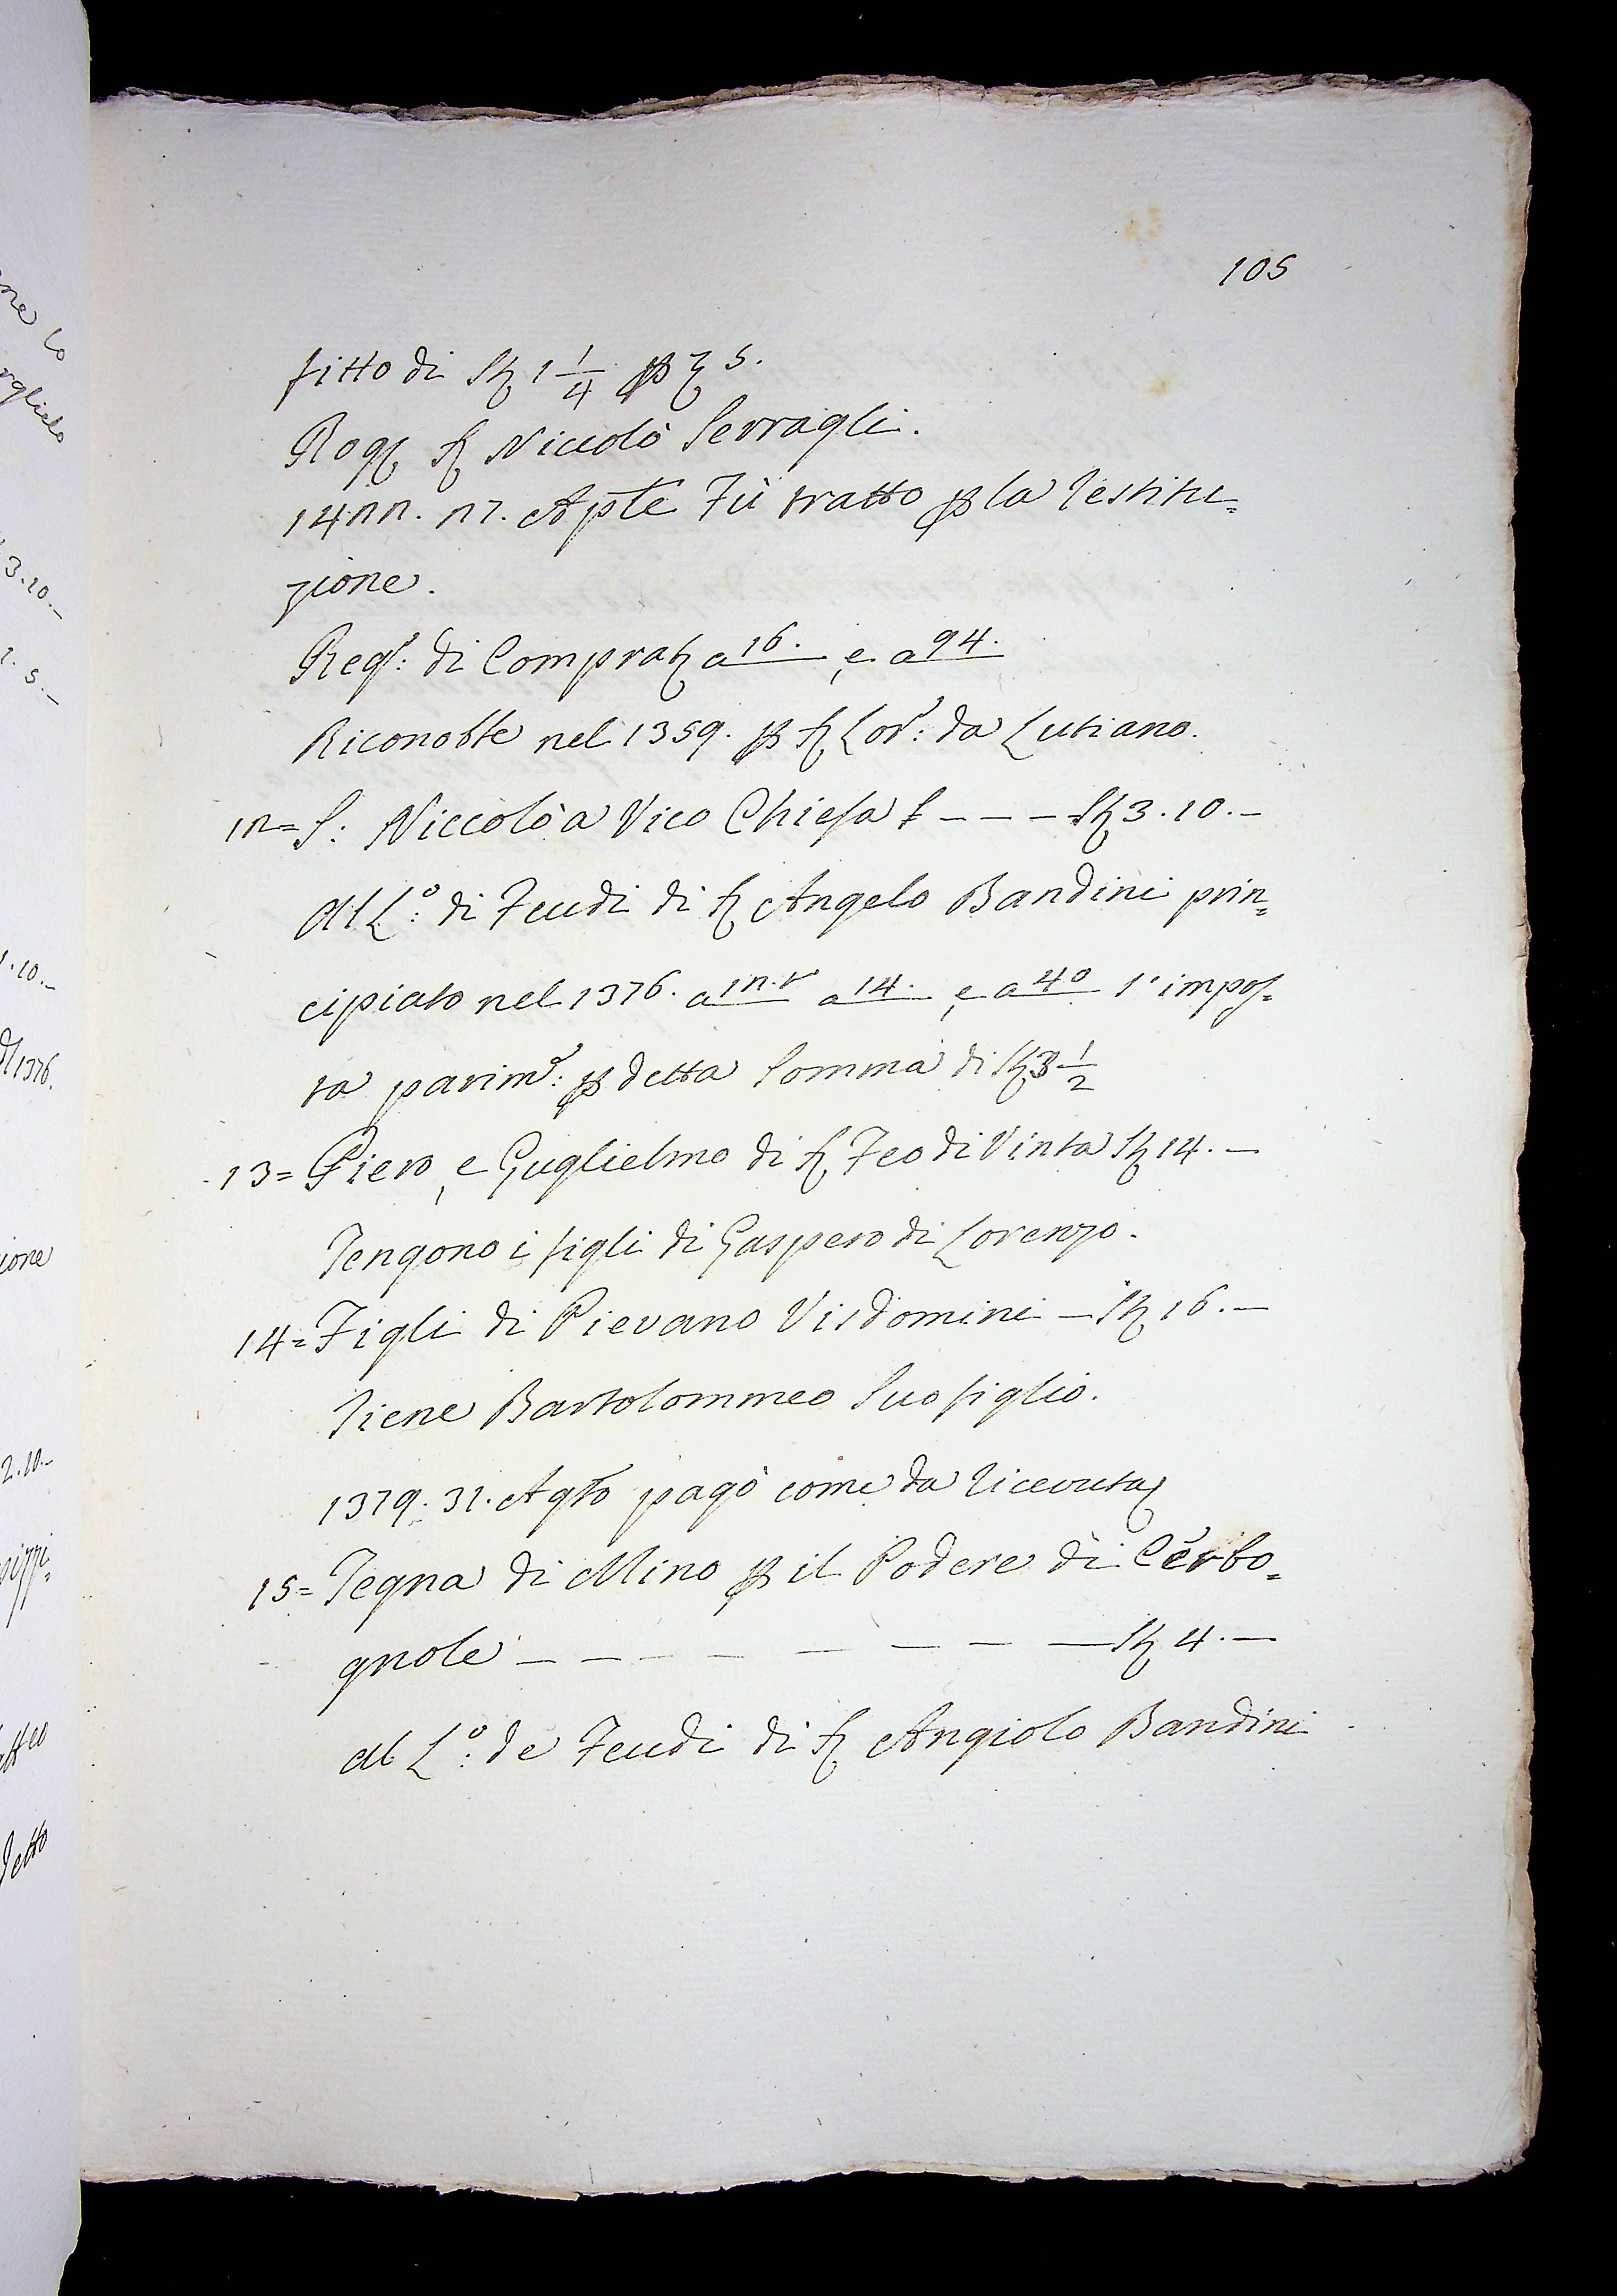 105
fitto di St 1 1/4 p 5.
Rog. Niccolò Serragli.
1422. 27. Aple Fù tratto p la restitu=
zione.
Regro: di Comprat a 16. , e a 94.
Riconobbe nel 1359. p S. Lor: da Lutiano.
12= S: Niccolò a Vico Chiesa - - - St 3. 10. -
Al L.o: di Feudi di S. Angelo Bandini prin=
cipiato nel 1376. a 12. t a 14. , e a 40 s'impos=
ta parim: p detta Somma di St 3 1/2
13= Piero, e Guglielmo di S. Feo di Vinta St 14. -
Tengono i figli di Gaspero di Lorenzo.
14= Figli di Pievano Visdomini - St 16. -
Tiene Bartolommeo suo figlio.
1379. 31. Agto pagò come da ricevuta
15= Tegna di Mino p il Podere di Cerbo=
gnole - - - - - - - - St 4. -
Al L.o: de Feudi di S. Angiolo Bandini
3.10.-
s.-
.10.-
1376.
ione
2.10.-
detto